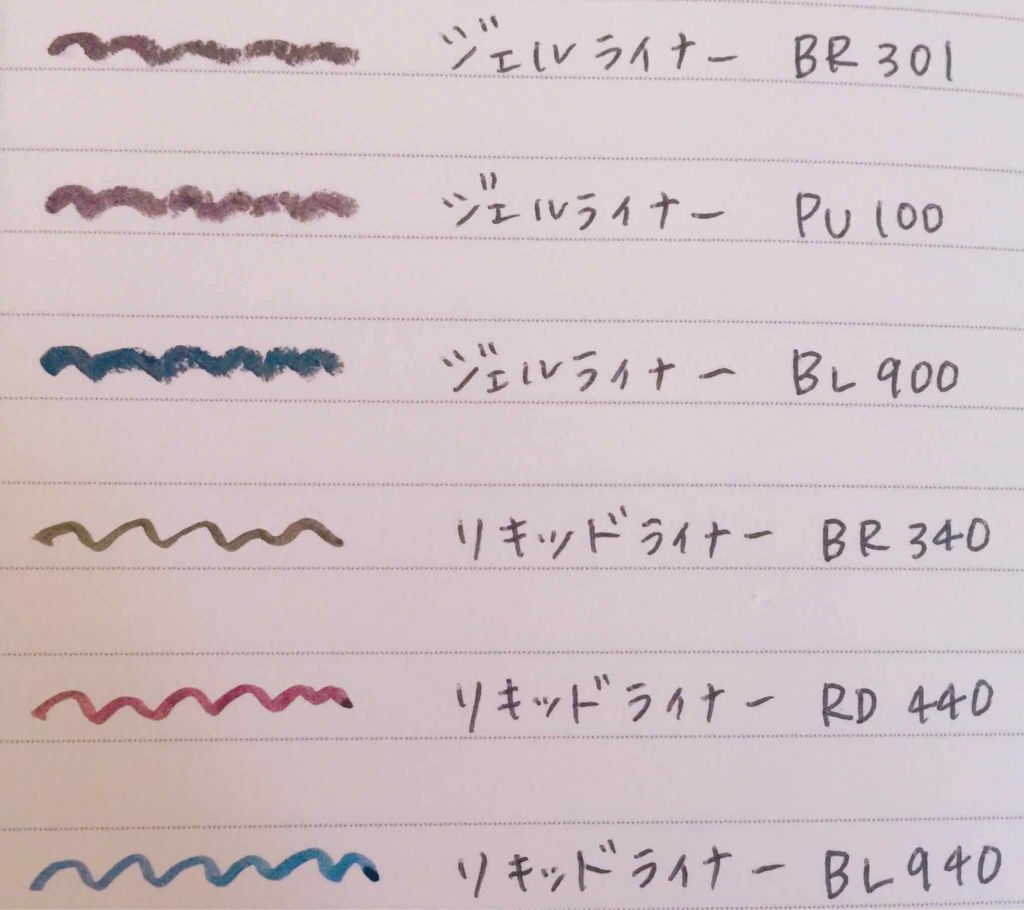 ジェルライナー BR301
ジェルライナー PU100
ジェルライナー BL900
リキッドライナー BR340
リキッドライナー RD440
リキッドライナー BL940